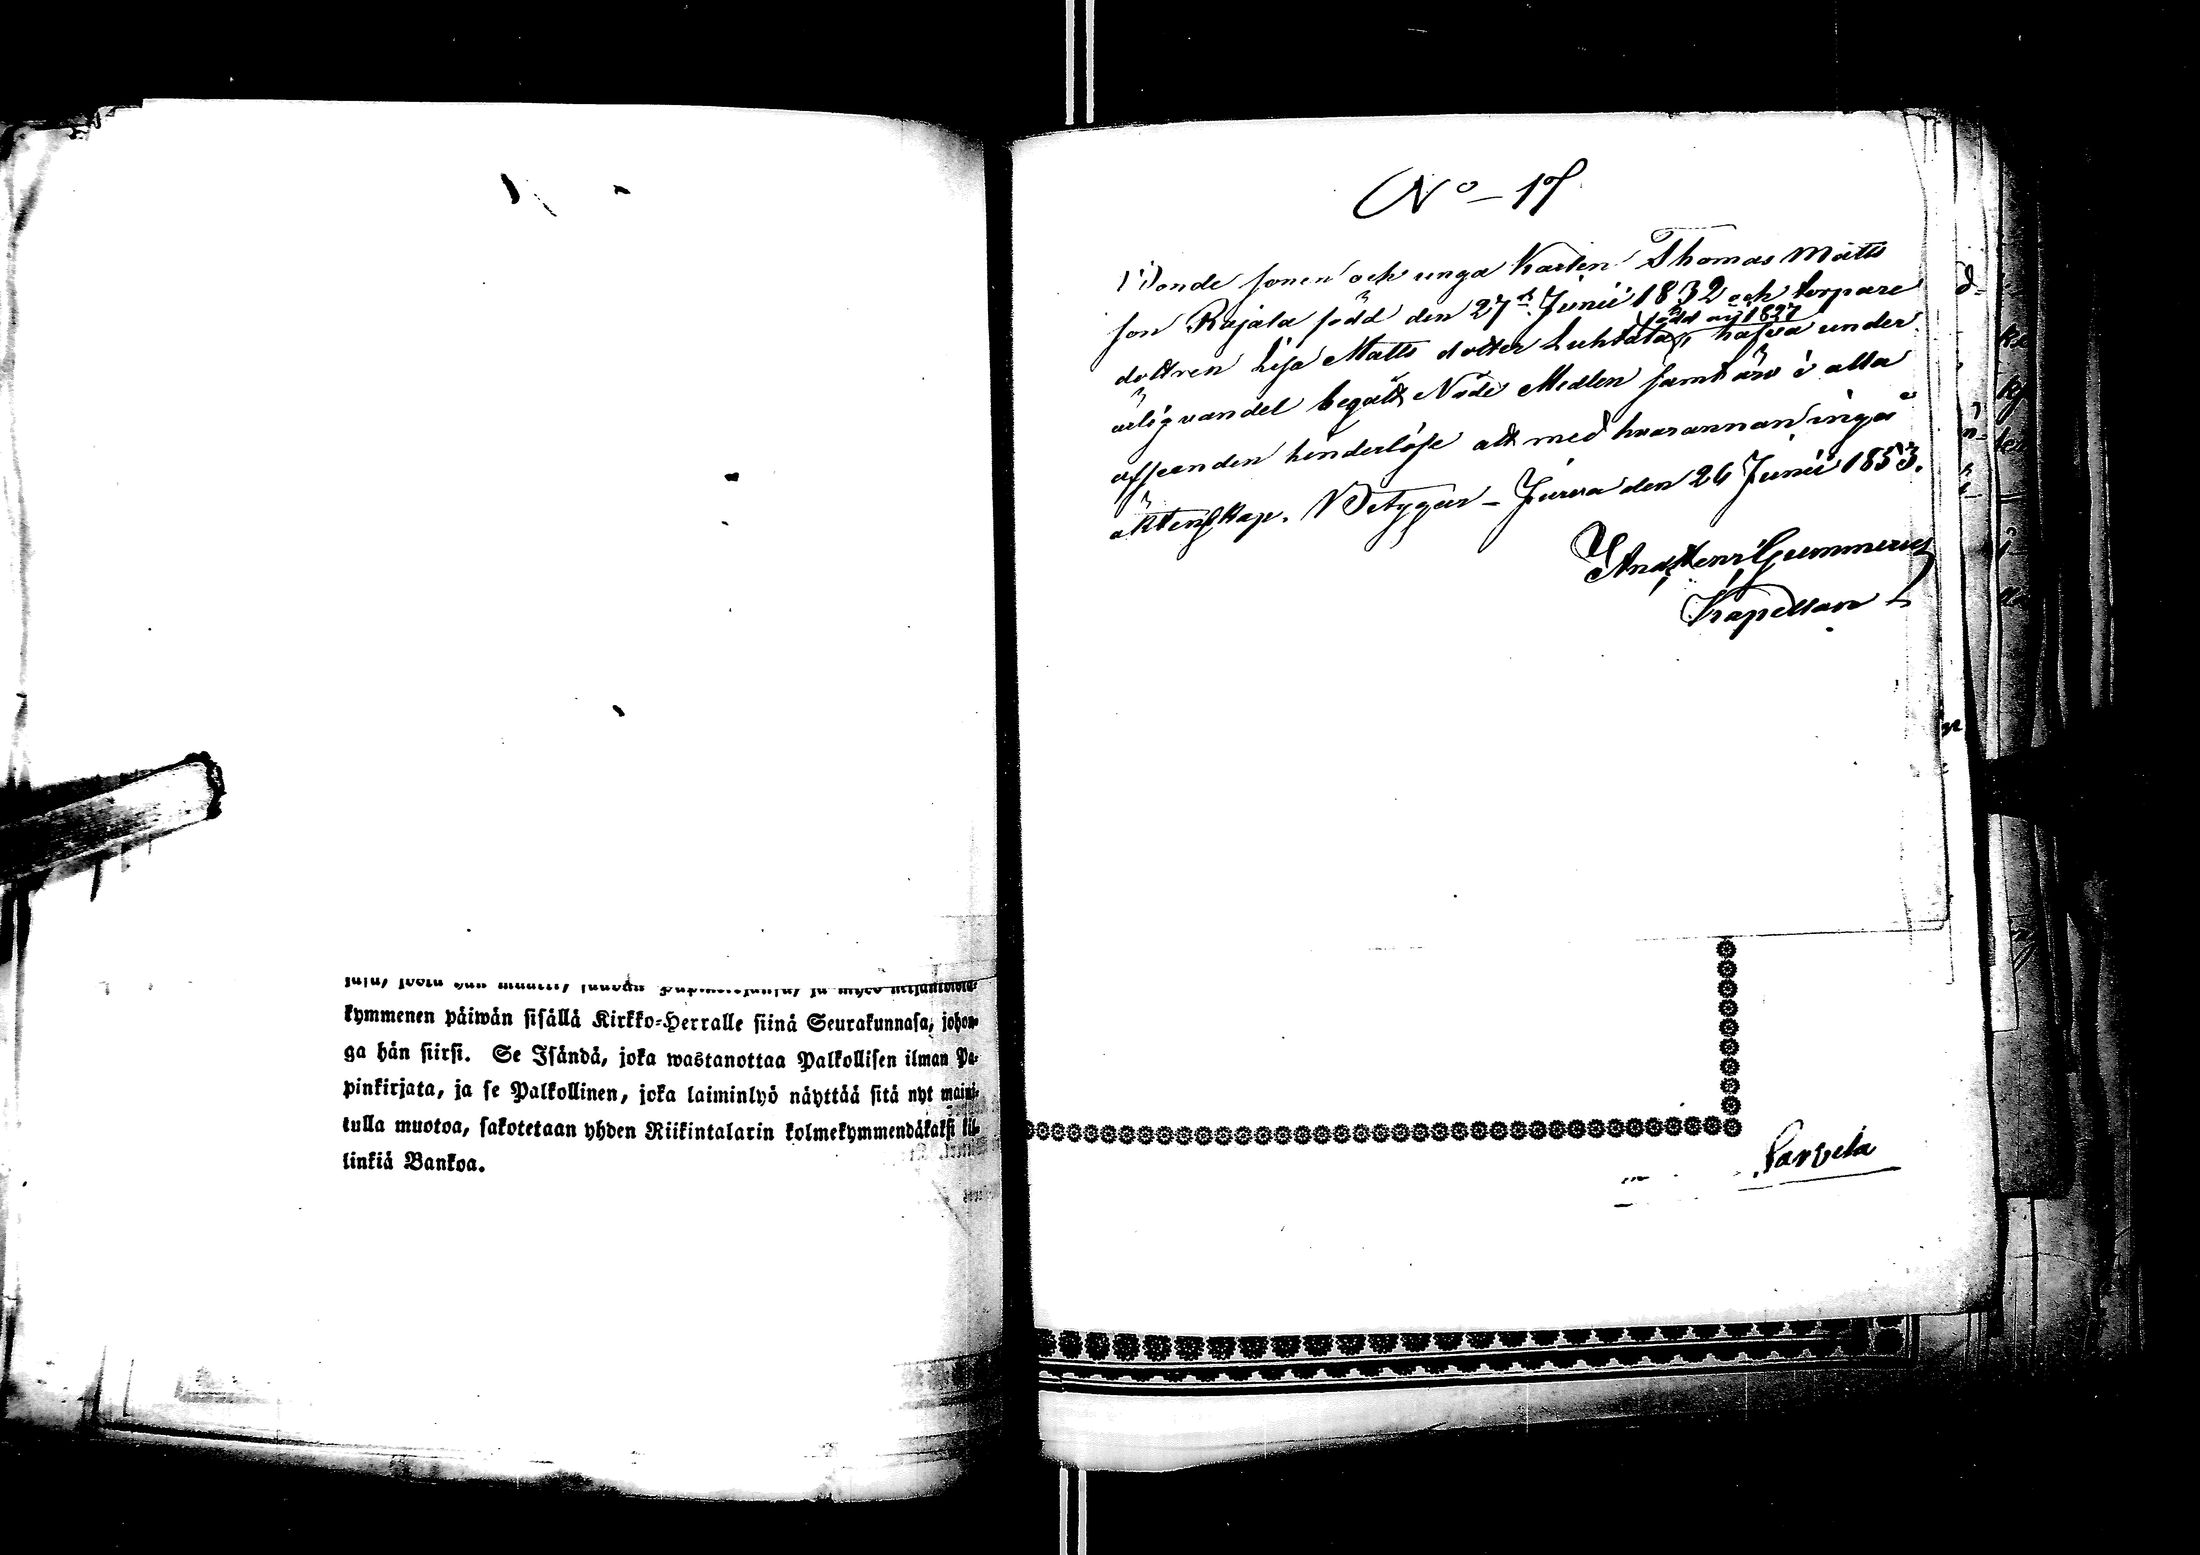 kymmenen päiwän sisällä Kirkko-Herralle siinä Seurakunnasa, johon-
ga hän siirsi. Se Isändä, joka wastanottaa Palkollisen ilman Pa-
pinkirjata, ja se Palkollinen, joka laiminlyö näyttää sitä nyt maini-
tulla muotoa, sakotetaan yhden Riikintalarin kolmekymmendäkaksi kil-
linkiä Bankoa.
No – 17
Bonde sonen och unga Karlen Thomas Matts
son Rajala född den 27de Junii 1832 och torpare
född år 1827
dottren Lisa Matts dotter Luhtala, hafva under
ärlig vandel begått Nåde Medlen samt äro i alla
afseenden hinderlöse att med hvarannan ingå
äktenskap. Betygar – Jurva den 26 Junii 1853.
And. Henr. Gummerus
Kapellan
Sarvela